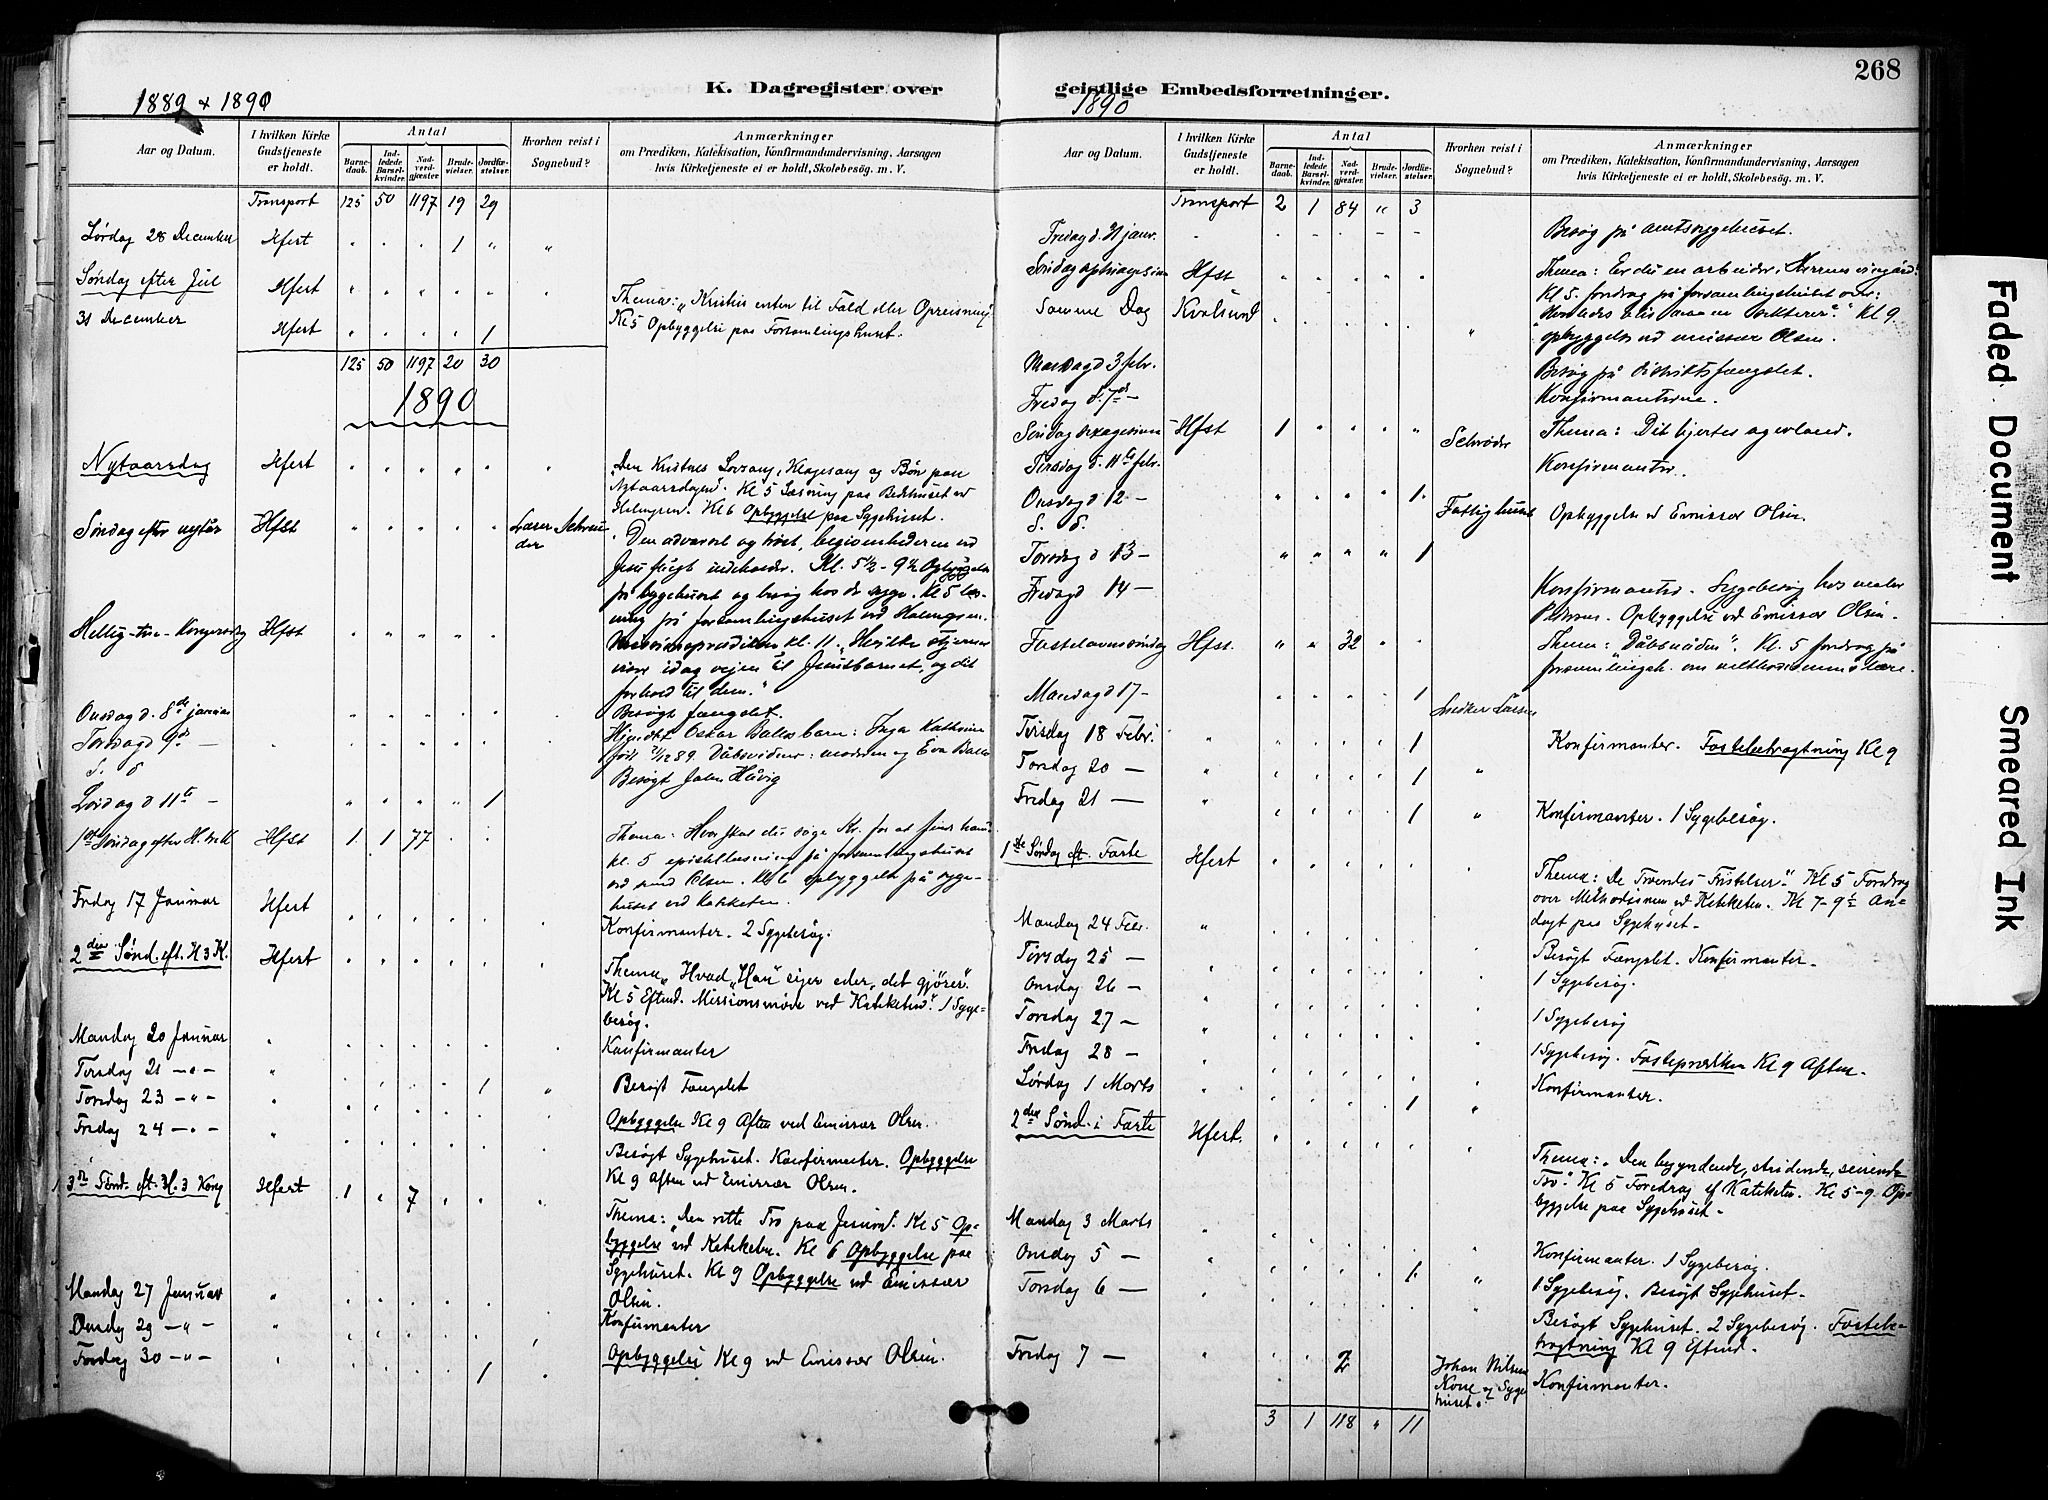 268
K. Dagregister over
geistlige Embedsforretninger.
1889 + 1890
1890
Aar og Datum.
I hvilken Kirke
Gudstjeneste
er holdt.
Antal
Barne-
daab.
Ind-
ledede
Barsel-
kvinder.
Nad-
verd-
gjæster.
Brude-
vielser.
Jordfæ-
stelser.
Hvorhen reist i
Sognebud?
Anmærkninger
om Prædiken, Katekisation, Konfirmandundervisning, Aarsagen
hvis Kirketjeneste ei er holdt, Skolebesøg. m. V.
Transport 125 50 1197 19 29
Lørdag 28 December Hfert " " " 1 " "
Søndag efter Jul Hfert " " " " " "
Thema: „Kristus enten til Fald eller Opreisning"
31 December Hfert " " " " 1
Kl 5 Opbyggelse paa Forsamlingshuset.
125 50 1197 20 30
1890
Nytaarsdag Hfert " " " " " "
„Den Kristnes Lovsang, Klagesang og Bøn paa
Nytaarsdagen". Kl 5 Læsning paa Bedehuset ved
Holmgren. Kl 6 Opbyggelse paa Sygehuset.
Søndag efter nytår Hfst " " " " "
Den advarsel og trøst, begivenhederne ved
Jesu flugt indeholder. Kl. 5½ - 9½ Opbyggelse
på sygehuset og besøg hos de syge. Kl 5 læs-
ning på forsamlingshuset ved Holmgren.
Hellig-tre-Kongersdag Hfst " " " " "
Missionsprædiken kl. 11. „Hvilke stjerner
viser idag vejen til Jesusbarnet, og dit
forhold til dem."
Onsdag d. 8de januar " " " " "
Besøgt fængslet.
Torsdag d 9de — " " " " "
født 7/12 89. Dåbsvidner: moderen og Eva
d. d
Besøgt John Håvig
Lørdag d 11te — " " " " 1
1ste Søndag efter H. tre K Hfst 1 1 77 " "
Thema: Hvor skal du søge Kr. for at finde ham
kl. 5 epistellæsning på forsamlingshuset
ved Olsen. Kl 6 opbyggelse på syge-
huset ved kateketen.
Fredag 17 Januar Hfert " " " " " "
Konfirmanter. 2 Sygebesøg.
2den Sønd. eft. H 3 K. Hfert " " " " " "
Thema „Hvad „Han" siger eder, det gjører".
Kl 5 Eftmd. Missionsmøde ved Kateketen". 1 Syge-
besøg.
Mandag 20 Januar " " " " " " "
Konfirmanter
Tirsdag 21 — " — " " " " " 1 "
Besøgt Fængslet
Torsdag 23 — " — " " " " " "
Opbyggelse Kl 9 Aften ved Emissær Olsen.
Fredag 24 — " — " " " " " "
Besøgt Sygehuset. Konfirmanter. Opbyggelse
Kl 9 Aften ved Emissær Olsen.
3die Sønd. eft. H. 3 Kong Hfert 1 " 7 " " "
Thema: „Den rette Tro paa Jesum". Kl 5 Op-
byggelse ved Kateketen. Kl 6 Opbyggelse paa
Sygehuset. Kl 9 Opbyggelse ved Emissær
Olsen.
Mandag 27 Januar " " " " " " "
Konfirmanter
Onsdag 29 — " — " " " " " " "
Opbyggelse Kl 9 ved Emissær Olsen.
Torsdag 30 — " — " " " " " 1 "
Aar og Datum.
I hvilken Kirke
Gudstjeneste
er holdt.
Antal
Barne-
daab.
Ind-
ledede
Barsel-
kvinder.
Nad-
verd-
gjæster.
Brude-
vielser.
Jordfæ-
stelser.
Hvorhen reist i
Sognebud?
Anmærkninger
om Prædiken, Katekisation, Konfirmandundervisning, Aarsagen
hvis Kirketjeneste ei er holdt, Skolebesøg. m. V.
Transport 2 1 84 " 3
Fredag d. 31 janr. - " " " - -
Besøg på amtssygehuset.
Søndag septuagesima Hfst " " " " "
Thema: Er du en arbeider i Herrens vingård?
Kl 5. foredrag på forsamlingshuset over:
Samme Dag Kvalsund " " " " " "
Kl 9
opbyggelse ved emissær Olsen.
Mandag d 3 febr.
Besøg på distriktsfængslet.
Fredag d. 7de —
Konfirmanterne.
Søndag sexagesima Hfst 1 " " " "
Schrøder
Thema: Dit hjertes agerland.
Tirsdag d. 11te febr.
Konfirmanter.
Onsdag d 12 — " " " " 1
d. d.
Fattighuset
Opbyggelse v Emissær Olsen.
Torsdag d 13 — " " " " 1
Fredag d 14 —
Konfirmanter. Sygebesøg hos maler
Opbyggelse ved Emissær Olsen.
Fastelavnssøndag Hfst. " " 32 " "
Thema: „Dåbsnåden". Kl. 5 foredrag på
forsamlingsh. om methodismens lære.
Mandag d 17 — " " " " 1
Snedker Larsen
Tirsdag 18 Febr. " " " " " 1
Konfirmanter. Fastebetragtning Kl 9
Torsdag 20 — " " " " " 1 "
Fredag 21 — " " " " " 1 "
Konfirmanter. 1 Sygebesøg.
1ste Søndag eft. Faste Hfert " " " " " "
Thema: De Troendes Fristelser". Kl 5 Foredrag
over Methodismen ved Kateketen. Kl 7-9½ An-
dagt paa Sygehuset.
Mandag 24 Febr. " " " " " " "
Besøgt Fængslet. Konfirmanter.
Tirsdag 25 — " " " " " " "
1 Sygebesøg.
Onsdag 26 — " " " " " " "
1 Sygebesøg
Torsdag 27 — " " " " " " "
1 Sygebesøg. Fasteprædiken Kl 9 Aften.
Fredag 28 — " " " " " " "
Konfirmanter.
Lørdag 1 Marts " " " " " 1 "
2den Sønd. i Faste Hfert. " " " " " "
Thema: „Den begyndende, stridende, seirende
Tro". Kl 5 Foredrag af Kateketen. Kl 5-9. Op-
byggelse paa Sygehuset.
Mandag 3 Marts " " " " " " "
Konfirmanter. 1 Sygebesøg.
Onsdag 5 — " " " " " 1 "
1 Sygebesøg. Besøgt Sygehuset.
Torsdag 6 — " " " " " " "
Besøgt Sygehuset. 2 Sygebesøg. Fastebe-
tragtning Kl 9 Eftmd.
Fredag 7 — " " " 2 " "
Johan Nilsens
Kone og Syge
huset.
Konfirmanter.
3 1 118 " 11
Faded Document
Smeared Ink